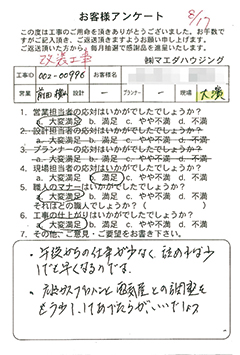 お客様アンケート
8/17
この度は工事のご用命を頂きありがとうございました。お手数で
すがご記入頂き、ご返送頂きますようお願い申し上げます。
ご返送頂いた方から、毎月抽選で感謝品を進呈いたします。
改装工事
㈱マエダハウジング
工事ID 002-00996 お客様名
営業 前田 設計 ー プランナー ー 現場 大濱
1. 営業担当者の応対はいかがでしたでしょうか?
a. 大変満足 b. 満足 c. やや不満 d. 不満
2. 設計担当者の応対はいかがでしたでしょうか?
a. 大変満足 b. 満足 c. やや不満 d. 不満
3. プランナーの応対はいかがでしたでしょうか?
a. 大変満足 b. 満足 c. やや不満 d. 不満
4. 現場担当者の応対はいかがでしたでしょうか?
a. 大変満足 b. 満足 c. やや不満 d. 不満
5. 職人のマナーはいかがでしたでしょうか?
a. 大変満足 b. 満足 c. やや不満 d. 不満
それはどの職人でしょうか?( )
6. 工事の仕上がりはいかがでしたでしょうか?
a. 大変満足 b. 満足 c. やや不満 d. 不満
7. その他、ご意見・ご要望をお書き下さい。
・午後からの仕事が少なく
早くなるのでは
との調整を
もう少し